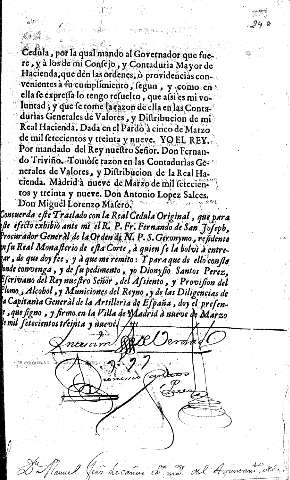 Cedula, por la qual mando al Governador que fue-
re, y à los de mi Consejo, y Contaduria Mayor de
Hacienda, que dèn las ordenes, ò providencias con-
venientes à su cumplimiento, segun, y como en
ella se expressa lo tengo resuelto, que assi es mi vo-
luntad; y que se tome la razon de ella en las Conta-
durias Generales de Valores, y Distribucion de mi
Real Hacienda. Dada en el Pardo à cinco de Marzo
de mil setecientos y treinta y nueve. YO EL REY.
Por mandado del Rey nuestro Señor. Don Fernan-
do Triviño. Tomòse razon en las Contadurias Ge-
nerales de Valores, y Distribucion de la Real Ha-
cienda. Madrid à nueve de Marzo de mil setecien-
tos y treinta y nueve. Don Antonio Lopez Salces.
Don Miguel Lorenzo Masero.
Concuerda este Traslado con la Real Cedula Original, que para
este efecto exhibiò ante mi el R. P. Fr. Fernando de San Joseph,
Procurador General de la Orden de N. P. S. Geronymo, residente
en su Real Monasterio de esta Corte, à quien se la bolvì à entre-
gar, de que doy fee, y à que me remito: Y para que de ello conste
donde convenga, y de su pedimento, yo Dionysio Santos Perez,
Escrivano del Rey nuestro Señor, del Assiento, y Provision del
Plomo, Alcohol, y Municiones del Reyno, y de las Diligencias de
la Capitania General de la Artilleria de España, doy el presen-
te, que signo, y firmo en la Villa de Madrid à nueve de Marzo
de mil setecientos treinta y nueve
En de Verdad
Santos
Perez
Dn. Manuel del